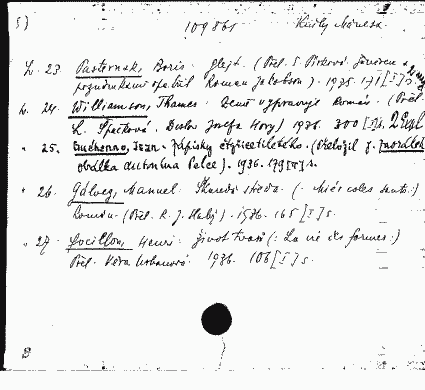 5) 109861
L. 23 Pasternak, Boris. Glejt. (Přel. S. Pírková-
poznámkami opatřil Roman Jakobson). 1935. 171 [I] s.
L. 24. Williamson, Thames. Země vypravuje. Román. (Přel.
L. Josefa Hory) 1936. 300 [I] s.
" 25. Guéhenno, Jean. Zápisky čtyřicetiletého. (Přeložil J. Zaorálek
obálka Antonína Pelce). 1936. 179 [I] s.
" 26. Gálvez, Manuel. Škaredá středa. (: Miércoles santo :)
Román. (Přel. 1936. 165 [I] s.
" 27. Focillon, Henri. Život tvarů (: La vie des formes :)
Přel. Věra Urbanová. 1936. 106 [I] s.